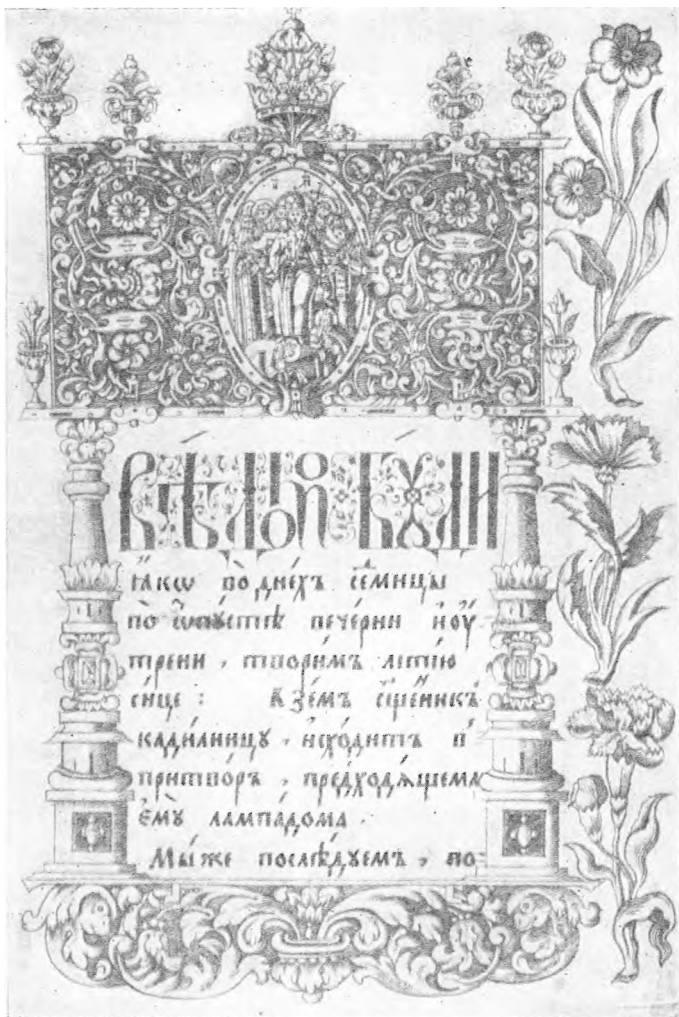 Вѣ́домо бꙋ́ди
ꙗ҆́кѡ во днéхъ сеⷣмицы
по ѿпꙋстѣ вечéрни и҆ оу҆
трени, творимъ литїю
си́це: взéмъ сщ҃éникъ
кади́лницꙋ, и҆схóдитъ в
притвóръ, предходѧ́щема
є҆мꙋ̀ лампáдома.
Мы́же послѣ́дꙋемъ, по